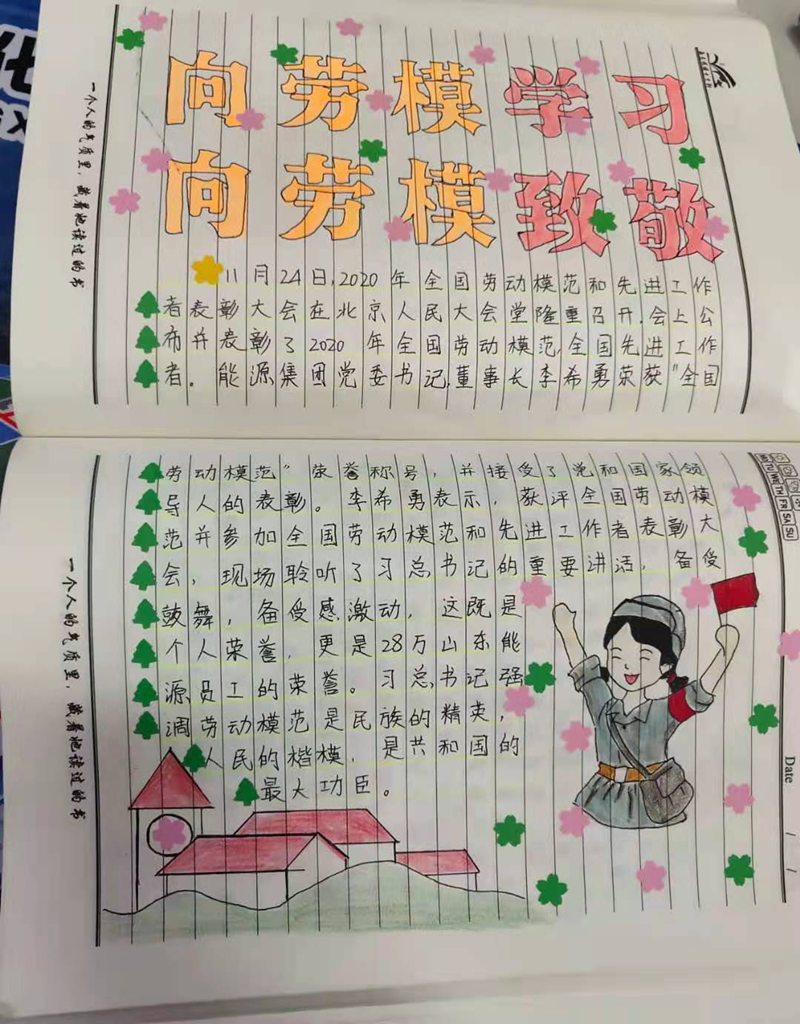 向劳模学习
向劳模致敬
11月24日,2020年全国劳动模范和先进工作
者表彰大会在北京人民大会堂隆重召开.会上公
布并表彰了2020年全国劳动模范,全国先进工作
者。能源集团党委书记,董事长李希勇荣获"全国
劳动模范"荣誉称号,并接受了党和国家领
导人的表彰。李希勇表示,获评全国劳动模
范并参加全国劳动模范和先进工作者表彰大
会,现场聆听了习总书记的重要讲话,备受
鼓舞,备受感激动,这既是
个人荣誉,更是28万山东能
源员工的荣誉。习总书记强
调劳动模范是民族的精英,
人民的楷模,是共和国的
最大功臣。
一个人的气质里,藏着他读过的书
一个人的气质里,藏着他读过的书
Date / /